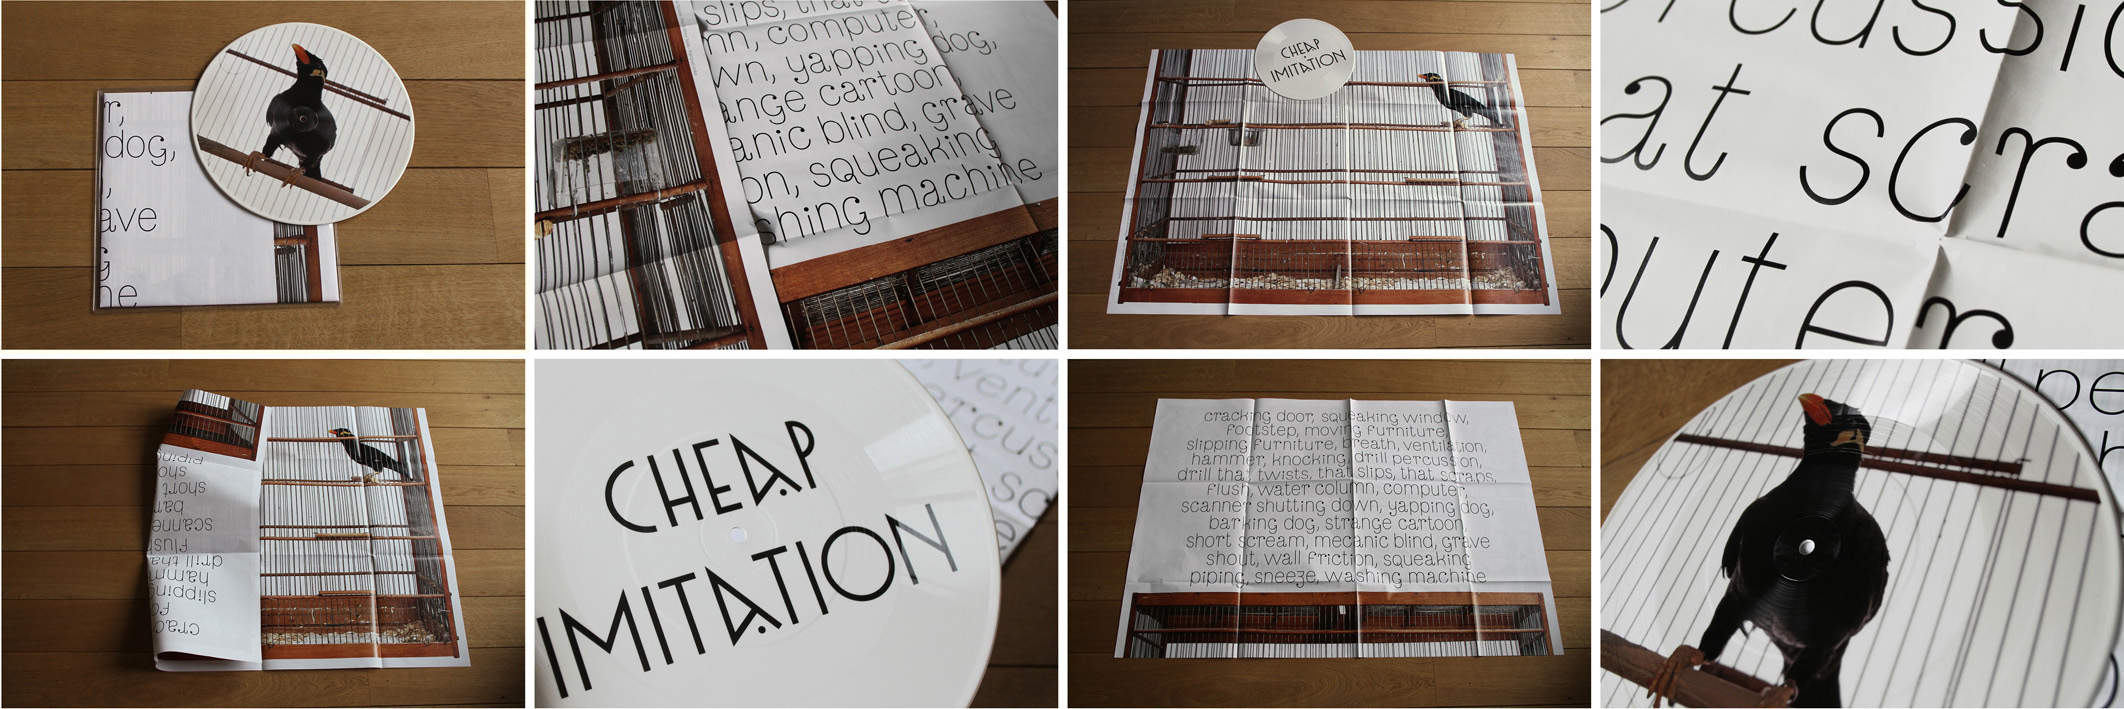 r,
dog,
,
ave
g
ne
slips, that
mn, computer,
wn, yapping dog,
ange cartoon,
anic blind, grave
on, squeaking
shing machine
CHEAP
IMITATION
rcussio
at scra
outer
piping
sho
short
bar
scanne
flush
drill tha
hamm
slipping
fo
crac
CHEAP
IMITATION
vent
ercus
sc
e
cracking door, squeaking window,
footstep, moving furniture,
slipping furniture, breath, ventilation,
hammer, knocking, drill percussion,
drill that twists, that slips, that scraps,
flush, water column, computer,
scanner shutting down, yapping dog,
barking dog, strange cartoon,
short scream, mecanic blind, grave
shout, wall friction, squeaking
piping, sneeze, washing machine
pe